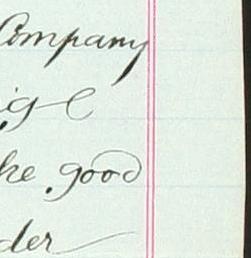 Company
ig e
he good
der